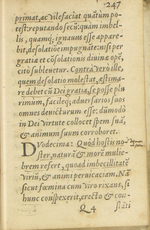 247
primat, ac vilefaciat quātum po-
test: reputando secū: quàm imbel-
lis, quàmq; ignauum esse appare-
bit, desolatiōe impugnāte: nisi per
gratiā et cōsolationis diuinæ opē,
citò subleuetur. Contrà verò ille,
quem desolatio molestat, æstima-
re debet cū Dei gratia, se posse plu
rimum, facileq; aduersarios suos
omnes deuicturum esse: dūmodò
in Dei virtute collocet spem suā,
& animum suum corroboret.
Duodecima: Quòd hostis no-
ster, naturā & morē mulie-
brem refert, quoad imbecillitatē
viriū, & animi peruicaciam. Nā
sicut fœmina cum viro rixans, si
hunc conspexerit, erecto & con-
Q 4
stāti